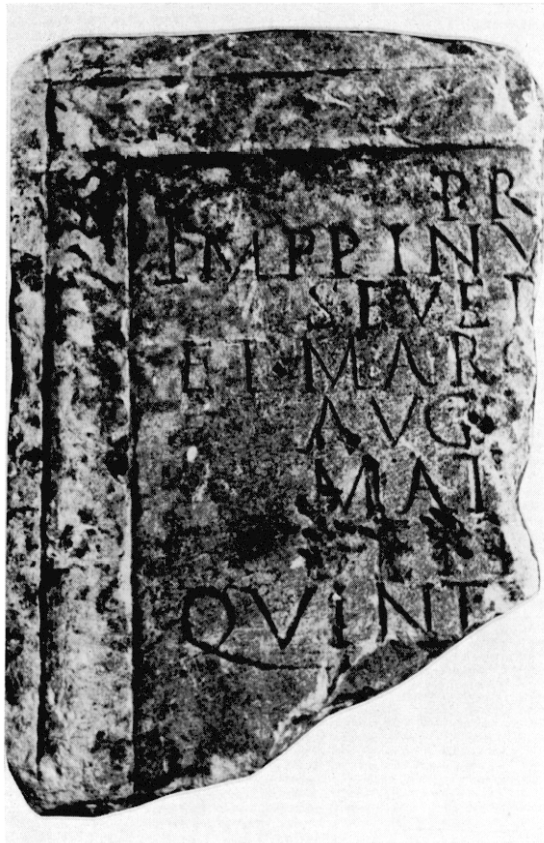 PR
IMPP INV
SEVE
ET MAR
AUG
MAT
QVINT